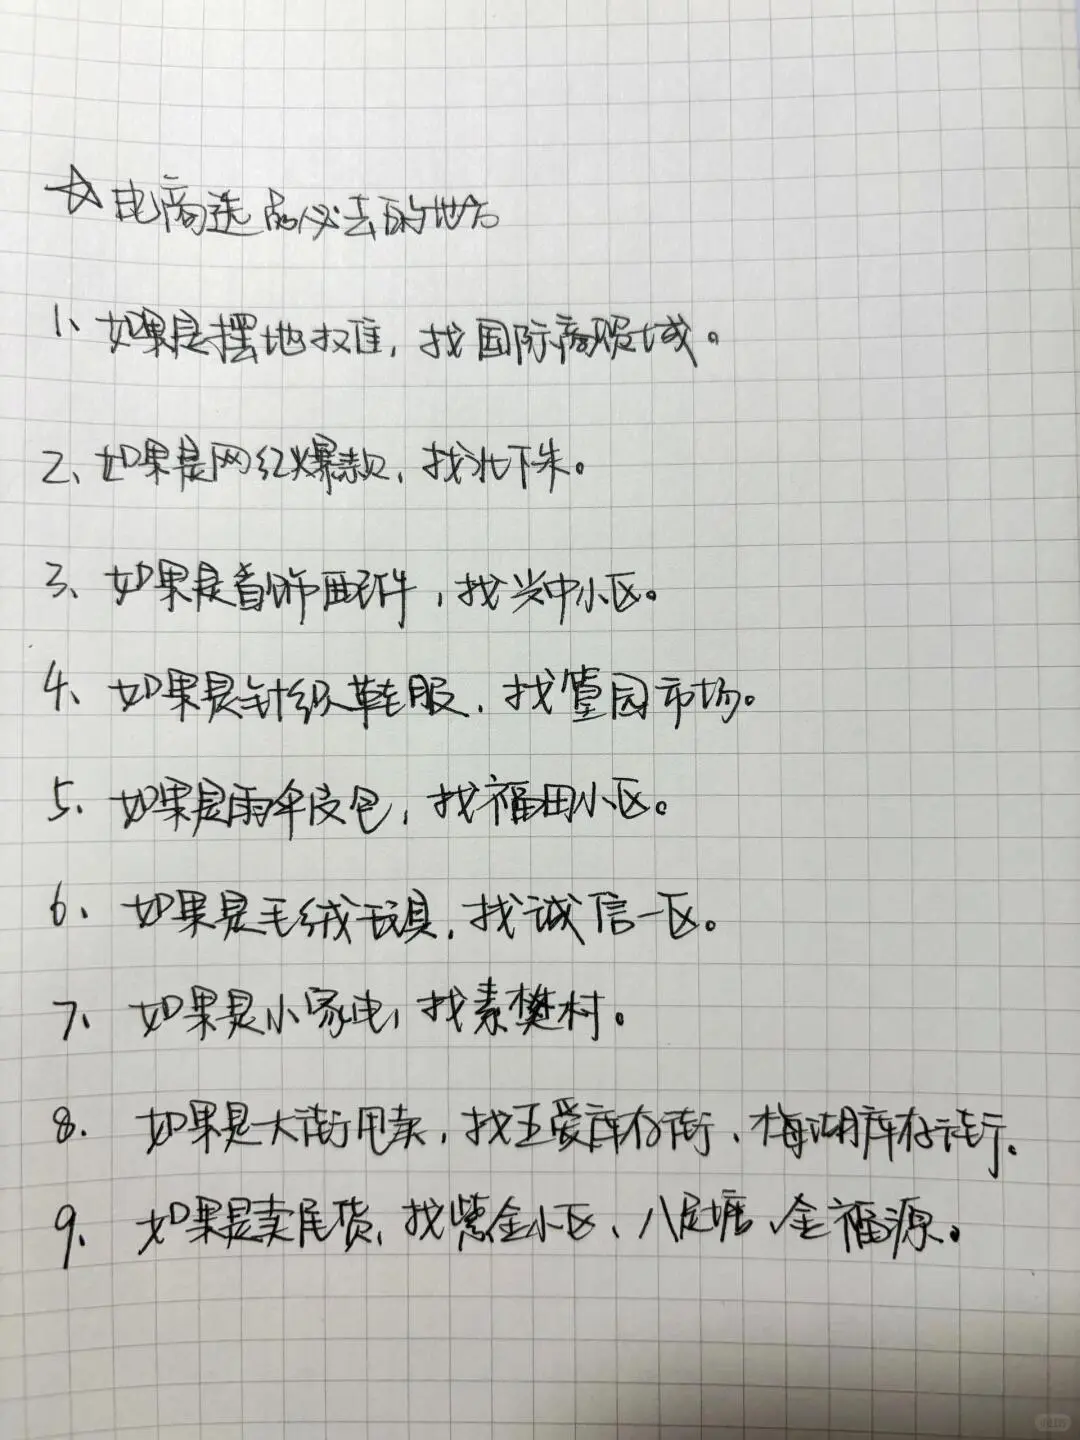 ☆电商选品必去的地方
1、如果是摆地摊，找国际商贸城。
2、如果是网红爆款，找北下朱。
3、如果是首饰配件，找兴中小区。
4、如果是针织鞋服，找篁园市场。
5、如果是雨伞皮包，找福田小区。
6、如果是毛绒玩具，找诚信一区。
7、如果是小家电，找素樊村。
8、如果是大街甩卖，找五爱库存街、梅湖库存街。
9、如果是卖尾货，找紫金小区、八足塘、金福源。